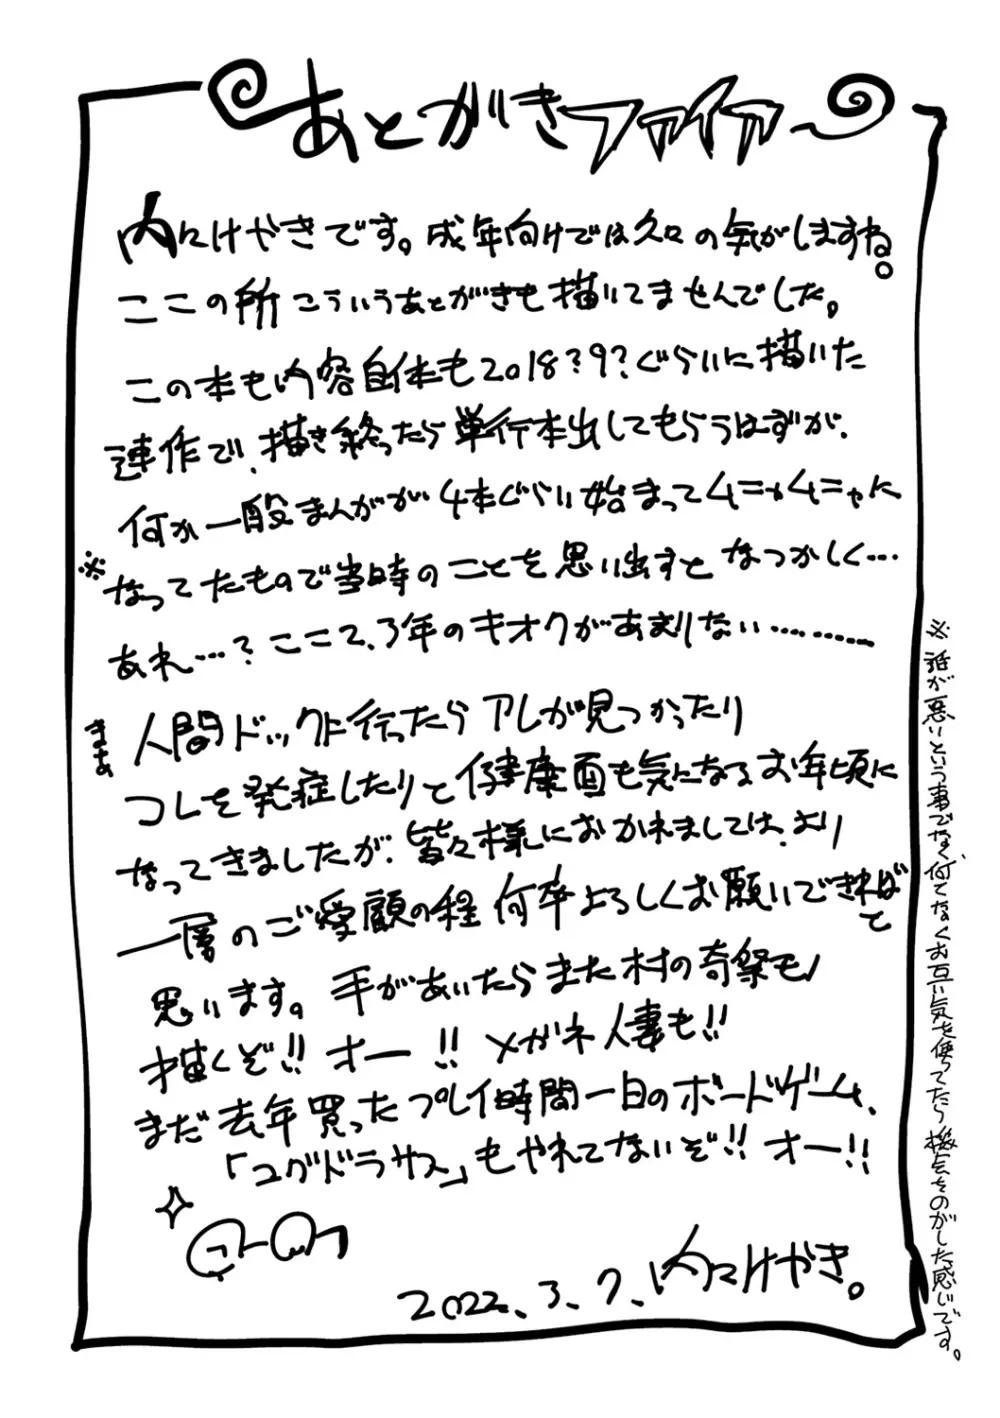 あとがきファイア
内々けやきです。成年向けでは久々の気がしますね。
ここの所こういうあとがきも描いてませんでした。
この本も内容自体も2018?9?ぐらいに描いた
連作で、描き終ったら単行本出してもらうはずが、
何か一般まんがが4本ぐらい始まってムニャムニャに
※なってたもので当時のことを思い出すとなつかしく…
あれ…?ここ2、3年のキオクがあまりない………
まぁ人間ドックに行ったらアレが見つかったり
コレを発症したりと健康面も気になるお年頃に
なってきましたが、皆々様におかれましては、より
一層のご愛顧の程何卒よろしくお願いできればと
思います。手があいたらまた村の奇祭モノ
描くぞ!!オー!!メガネ人妻も!!
まだ去年買ったプレイ時間一日のボードゲーム、
「ユグドラサス」もやれてないぞ!!オー!!
2022、3、7、内々けやき。
※誰が悪いという事でなく、何てなくお互い気を使ってたら機会をのがした感じです。